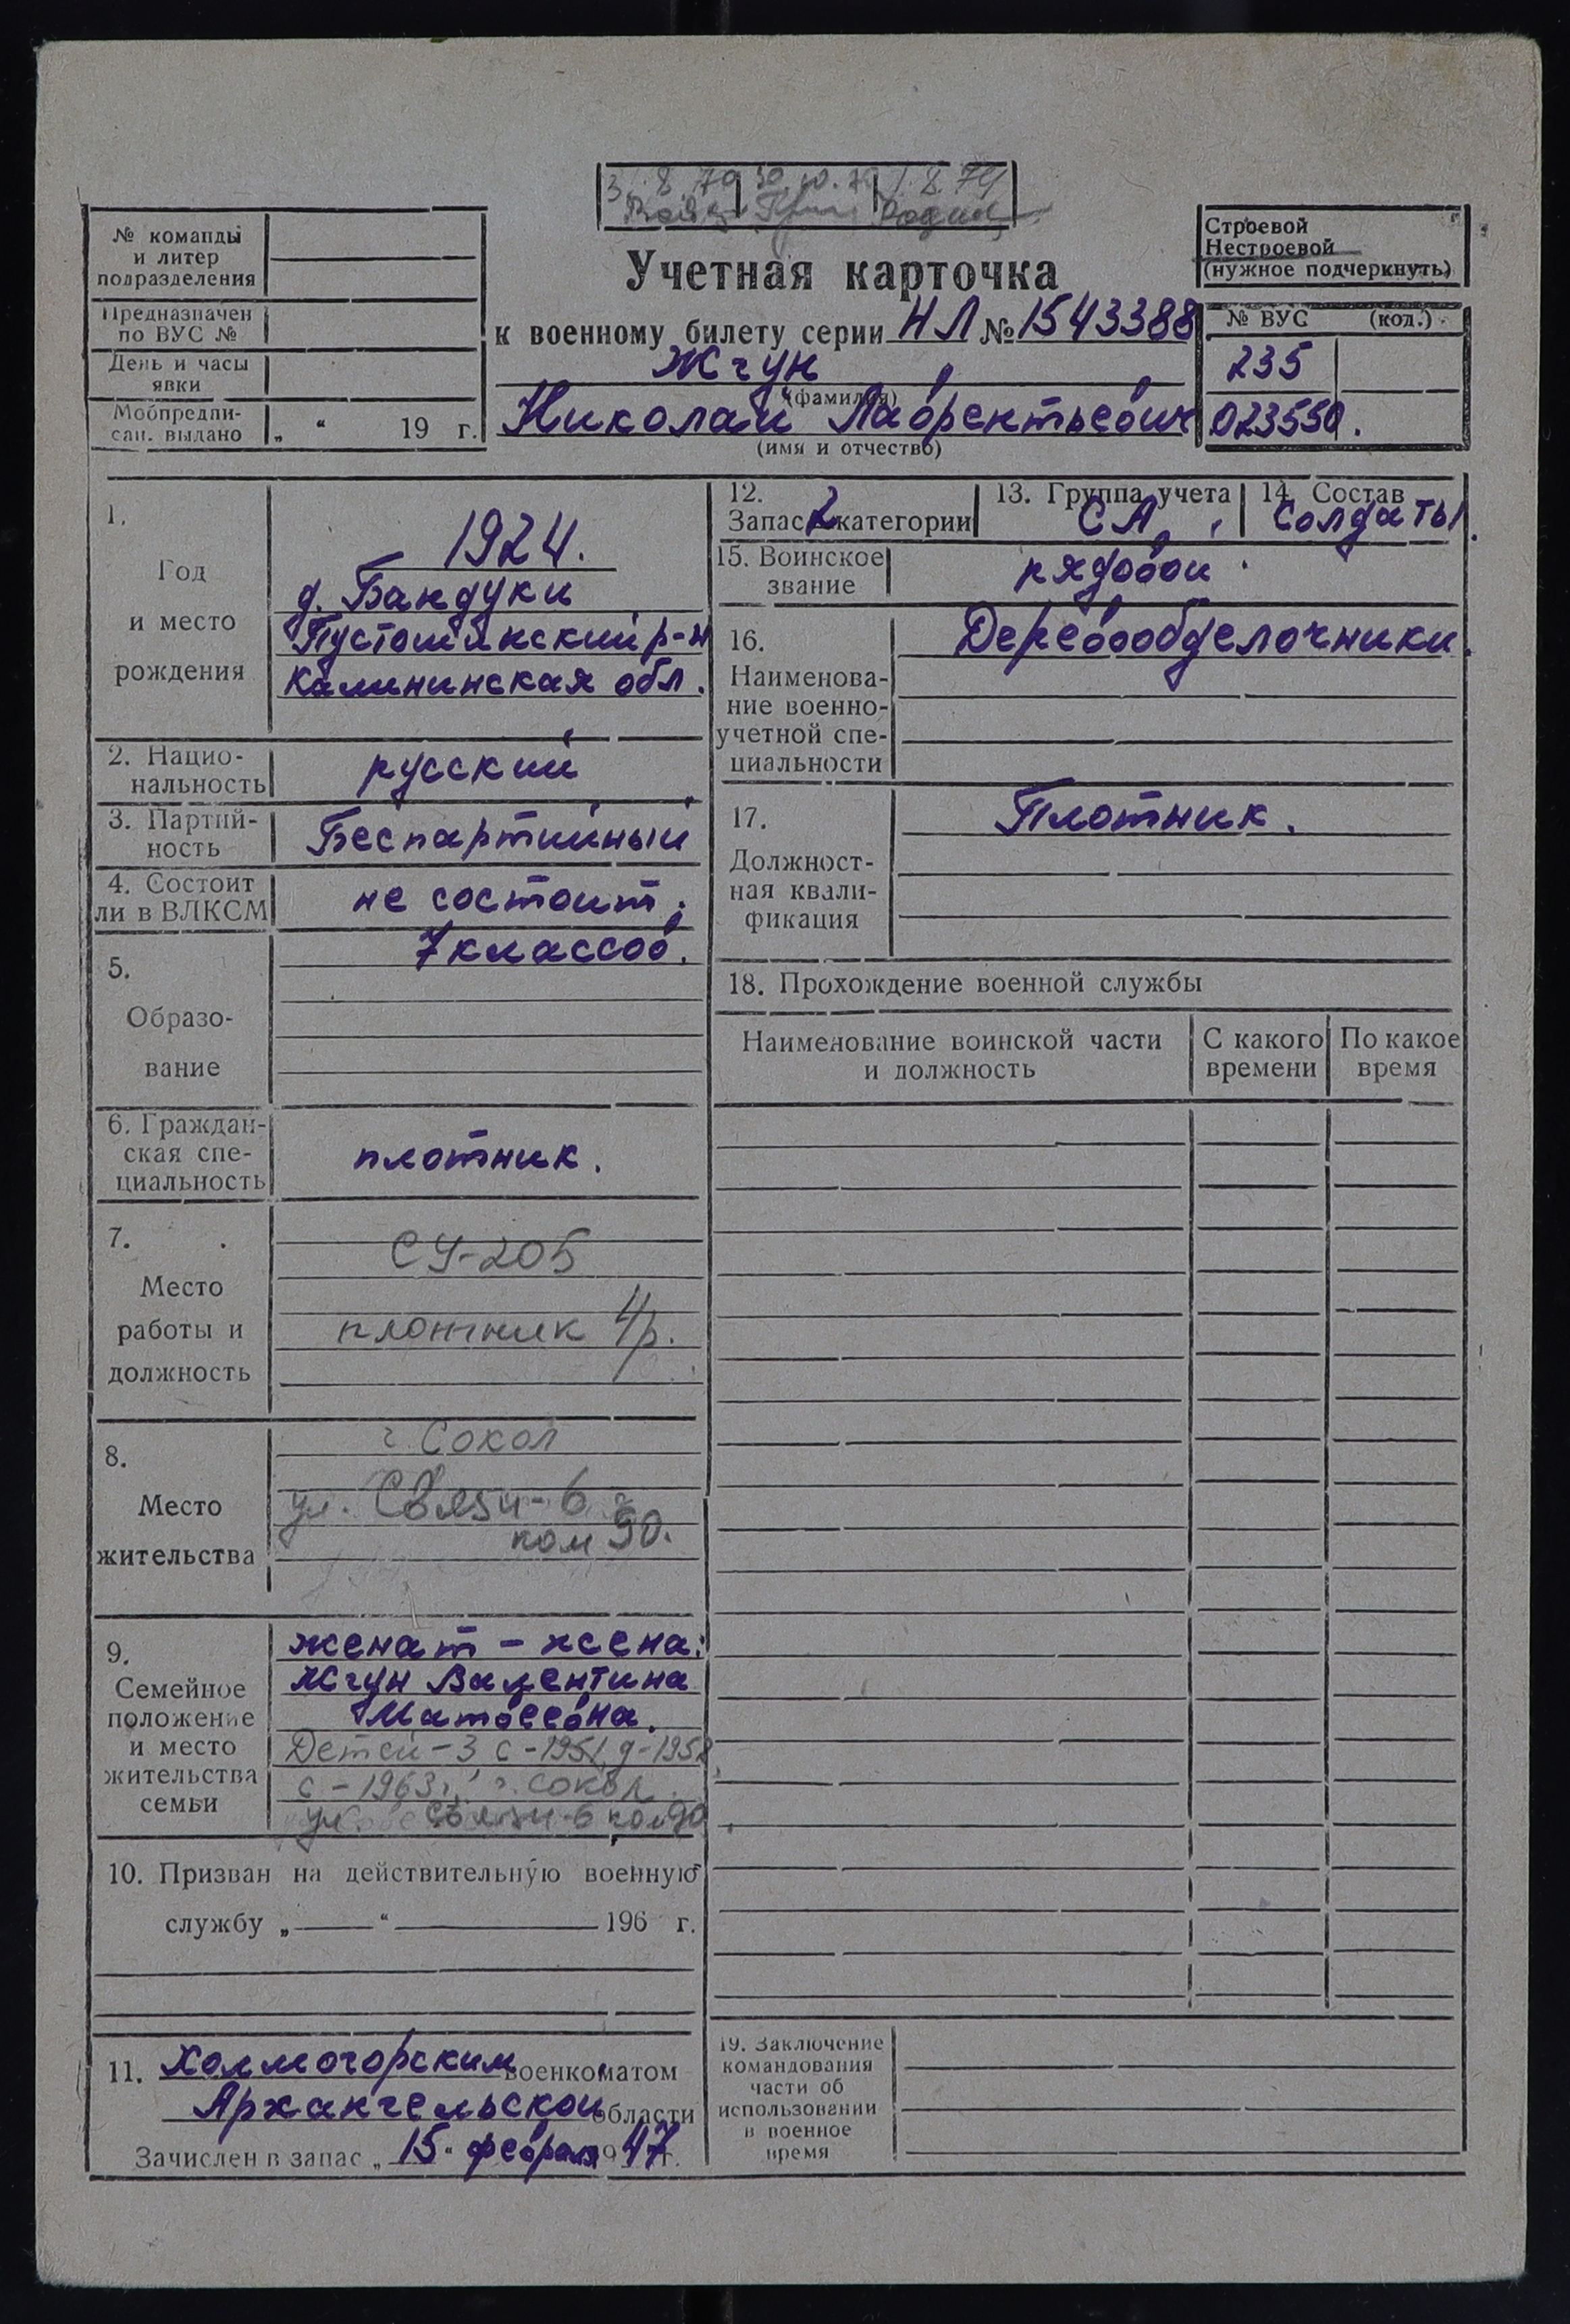 31.8.70 30.10.72 1.8.74
№ команды
и литер
подразделения
Предназначен
по ВУС №
День и часы
явки
Мобпредпи-
сан. выдано „ “ 19 г.
Учетная карточка
к военному билету серии НЛ № 1543388
Жгун
(фамилия)
Николай Лаврентьевич
(имя и отчество)
Строевой
Нестроевой
(нужное подчеркнуть)
№ ВУС (код.)
235
023550.
1.
Год
и место
рождения
1924.
д. Бандуки
Пустошинский р-н
Калининская обл.
2. Нацио-
нальность
русский
3. Партий-
ность
Беспартийный
4. Состоит
ли в ВЛКСМ
не состоит.
5.
Образо-
вание
7 классов.
6. Граждан-
ская спе-
циальность
плотник.
7.
Место
работы и
должность
СУ-205
плотник 4р.
8.
Место
жительства
г. Сокол
ул. Связи-6
ком 90.
9.
Семейное
положение
и место
жительства
семьи
женат - жена:
Жгун Валентина
Матвеевна.
Детей-3 с-1951, д-1958
с-1963г, г. Сокол
ул Связи-6 ком 90.
10. Призван на действительную военную
службу „ “ 196 г.
11. Холмогорским военкоматом
Архангельской области
Зачислен в запас „15“ февраля 1947 г.
12.
Запас 2 категории
13. Группа учета
СА
14. Состав
Солдаты.
15. Воинское
звание
рядовой
16.
Наименова-
ние военно-
учетной спе-
циальности
Деревообделочники.
17.
Должност-
ная квали-
фикация
Плотник.
18. Прохождение военной службы
Наименование воинской части
и должность
С какого
времени
По какое
время
19. Заключение
командования
части об
использовании
в военное
время